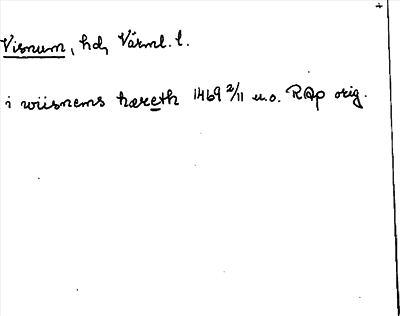 Visnum, hd, Värml. l.
i wiisnems hæreth 1469 2/11 u.o. RAp orig.